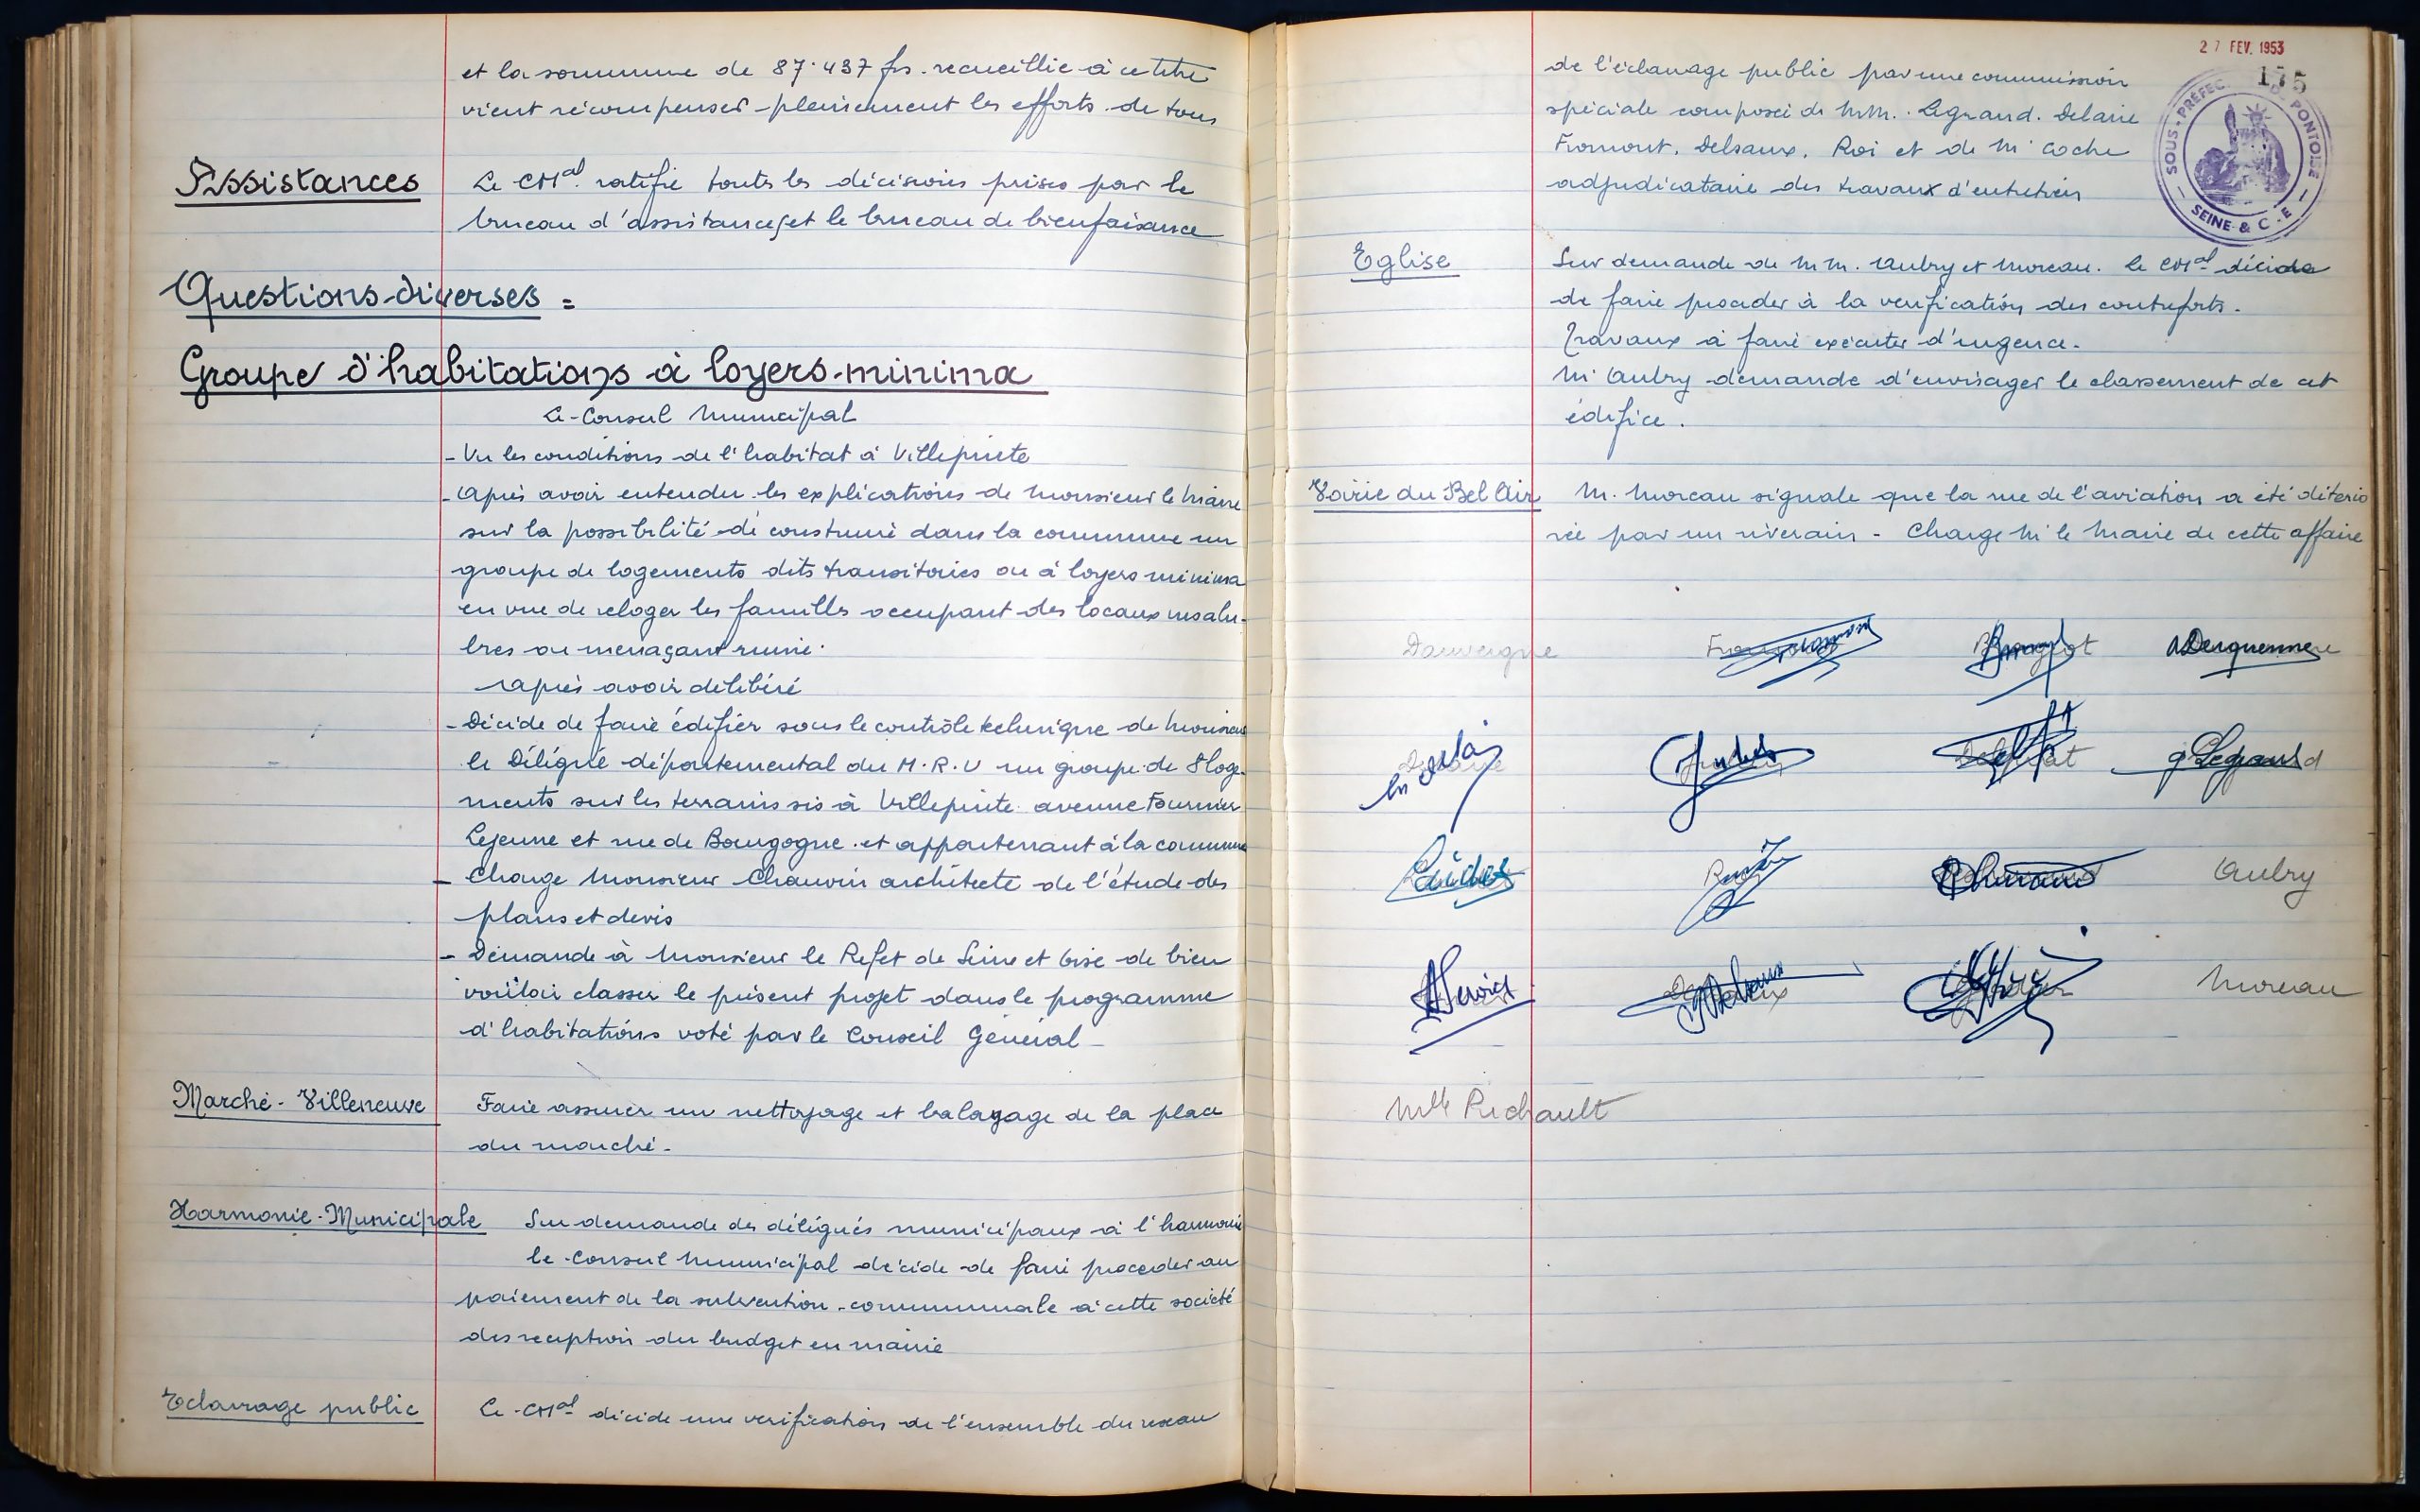 et la somme de 87.437 frs. recueillie à ce titre
vient récompenser pleinement les efforts de tous
Assistances
Le CMal. ratifie toutes les décisions prises par le
bureau d'assistances et le bureau de bienfaisance
Questions diverses =
Groupe d'habitations à loyers minima
Le Conseil Municipal
- Vu les conditions de l'habitat à Villepinte
- Après avoir entendu les explications de Monsieur le Maire
sur la possibilité de construire dans la commune un
groupe de logements dits transitoires ou à loyers minima
en vue de reloger les familles occupant des locaux insalu-
bres ou menaçant ruine.
Après avoir délibéré
- Décide de faire édifier sous le contrôle technique de Monsieur
le Délégué départemental du M.R.U un groupe de 8 loge-
ments sur les terrains sis à Villepinte avenue Fournier
Lejeune et rue de Bourgogne et appartenant à la commune
- Charge Monsieur Chauvin architecte de l'étude des
plans et devis
- Demande à Monsieur le Préfet de Seine et Oise de bien
vouloir classer le présent projet dans le programme
d'habitations voté par le Conseil Général -
Marché - Villeneuve
Faire assurer un nettoyage et balayage de la place
du marché -
Harmonie - Municipale
Sur demande des délégués municipaux à l'harmonie
le Conseil Municipal décide de faire procéder au
paiement de la subvention communale à cette société
dès réception du budget en mairie
Eclairage public
Le CMal décide une vérification de l'ensemble du réseau
27 FEV. 1953
175
SOUS-PRÉFEC. DE PONTOISE
SEINE & O.
de l'éclairage public par une commission
spéciale composée de MM. Legrand. Delaire
Fromont, Delsaux, Roi et de Mr Coche
adjudicataire des travaux d'entretien
Eglise
Sur demande de MM. Aubry et Moreau. le CMal décide
de faire procéder à la vérification des contreforts.
Travaux à faire exécuter d'urgence.
Mr Aubry demande d'envisager le classement de cet
édifice.
Voirie du Bel Air
M. Moreau signale que la rue de l'aviation a été détério
rée par un riverain - Charge Mr le Maire de cette affaire
Dauvergne
Derquenne
g Legrand
Aubry
Moreau
Mlle Richault